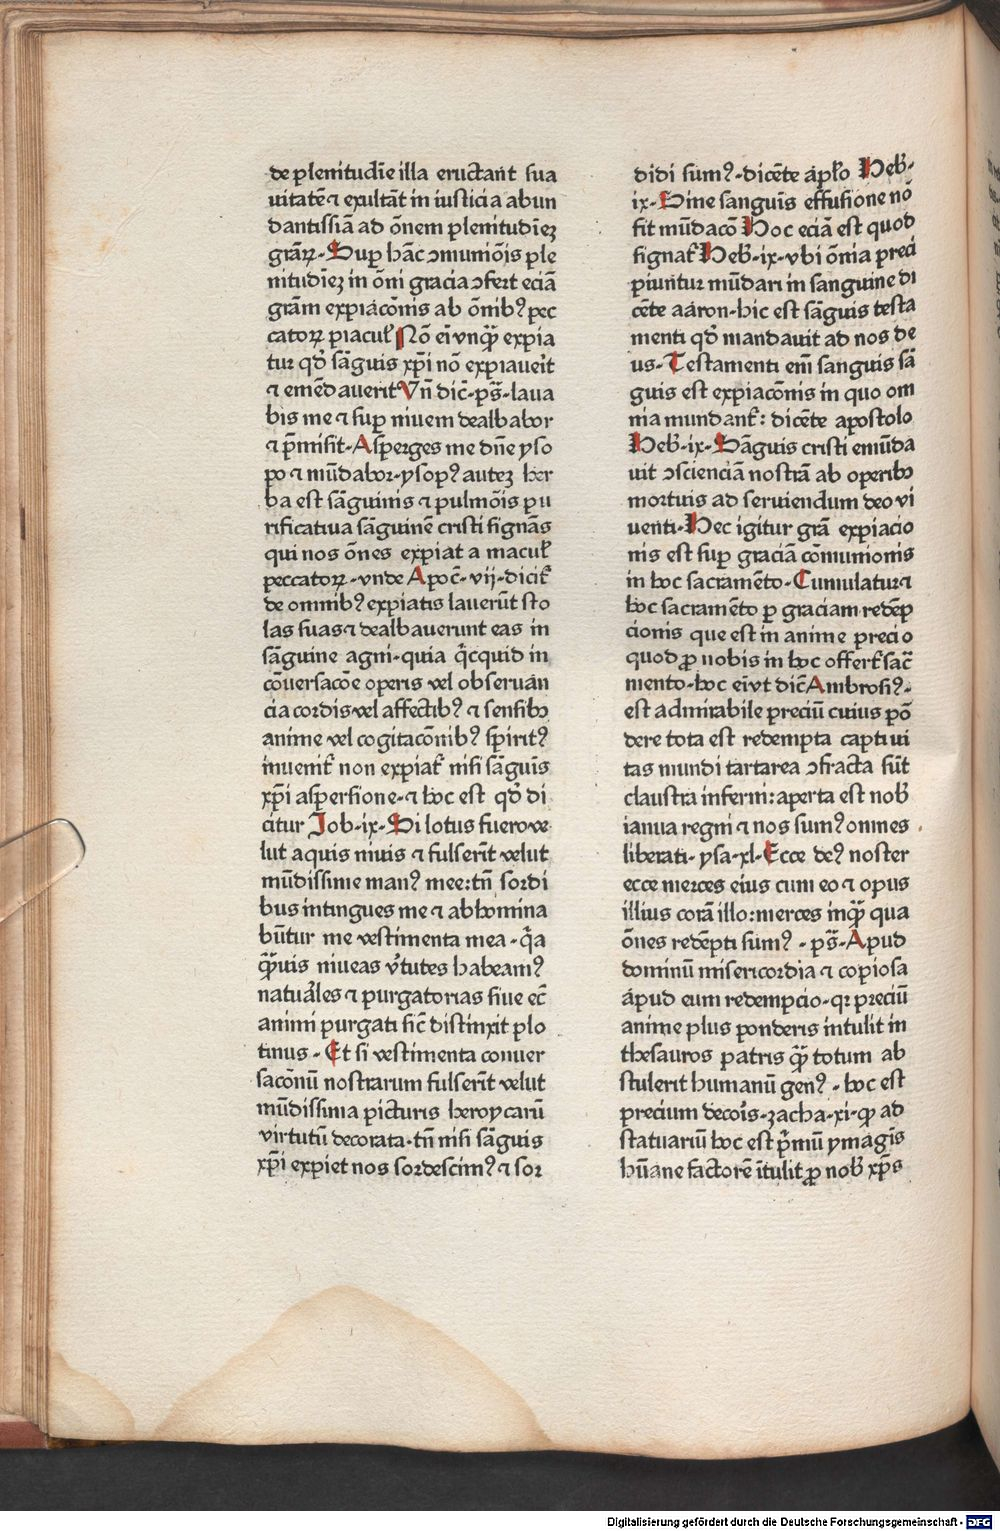 de plenitudīe illa eructant sua
uitatē ⁊ exultāt in iusticia abun
dantissiā ad ōnem plenitudīeꝫ
grāꝝ. Suꝑ hāc ɔmuniōis ple
nitudīeꝫ in ōni gracia ɔfert eciā
grām expiacōnis ab ōnibꝰ pec
catorꝝ piacul̓ Nō eī vnqᷓꝫ expia
tur qd̓ sāguis xp̄i nō expiaueīt
⁊ emēdauerit Vn̄ dic̄. ps̄. laua
bis me ⁊ suꝑ niuem dealbabor
⁊ p̄misit. Asperges me dn̄e yso
po ⁊ mūdabor. ysopꝰ auteꝫ her
ba est sāguinis ⁊ pulmōis pu
rificatiua sāguinē cristi signās
qui nos ōnes expiat a macul̓
peccatorꝝ. vnde Apoc̄. vij. dicit̓
de omnibꝰ expiatis lauerūt sto
las suas ⁊ dealbauerunt eas in
sāguine agni. quia q̄cquid in
cōuersacōe operis vel obseruān
cia cordis vel affectibꝰ ⁊ sensibꝫ
anime vel cogitacōnibꝰ spiritꝰ
inuenit̓ non expiat̓ nisi sāguīs
xp̄i aspersione. ⁊ hoc est qd̓ di
citur Job. ix. Si lotus fuero ve
lut aquis niuis ⁊ fulserīt velut
mūdissime manꝰ mee: tn̄ sordi
bus intingues me ⁊ abhomina
būtur me vestimenta mea. q̄a
qᷓꝫuis niueas v̓tutes habeamꝰ
natuāles ⁊ purgatorias siue ec̄
animi purgati sic̄ distinxit plo
tinus. Et si vestimenta conuer
sacōnū nostrarum fulserīt velut
mūdissima picturis heroycarū
virtutū decorata. tn̄ nisi sāguis
xp̄i expiet nos sordescimꝰ ⁊ sor
didi sumꝰ. dicēte ap̄ło Heb̄.
ix. Sine sanguīs effusione nō
fit mūdacō Hoc eciā est quod
signat̓ Heb̄. ix. vbi ōmia preci
piuntur mūdari in sanguine di
cēte aaron. hic est sāguis testa
menti qd̓ mandauit ad nos de
us. Testamenti enī sanguis sā
guis est expiacōnis in quo om
nia mundant̓: dicēte apostolo
Heb̄. ix. Sāguis cristi emūda
uit ɔscienciā nostrā ab operibꝫ
mortuis ad seruiendum deo vi
uenti. Hec igitur grā expiacio
nis est suꝑ graciā cōmunionis
in hoc sacramēto. Cumulatur ⁊
hoc sacramēto ꝑ graciam redēp
cionis que est in anime precio
quod ꝓ nobis in hoc offert̓ sac̄
mento. hoc eī vt dic̄ Ambrosiꝰ.
est admirabile preciū cuius pō
dere tota est redempta captiui
tas mundi tartarea ɔfracta sūt
claustra inferni: aperta est nob̄
ianua regni ⁊ nos sumꝰ onmes
liberati. ysa. xl. Ecce deꝰ noster
ecce merces eius cum eo ⁊ opus
illius corā illo: merces inqᷓꝫ qua
ōnes redēpti sumꝰ. ps̄. Apud
dominū misericordia ⁊ copiosa
apud eum redempcio. qꝛ preciū
anime plus ponderis intulit in
thesauros patris qᷓꝫ totum ab
stulerit humanū genꝰ. hoc est
precium decoīs. zacha. xi. ꝙ ad
statuariū hoc est p̄mū ymagīs
hūane factorē ītulit ꝓ nob̄ xp̄s
Digitalisierung gefördert durch die Deutsche Forschungsgemeinschaft - DFG